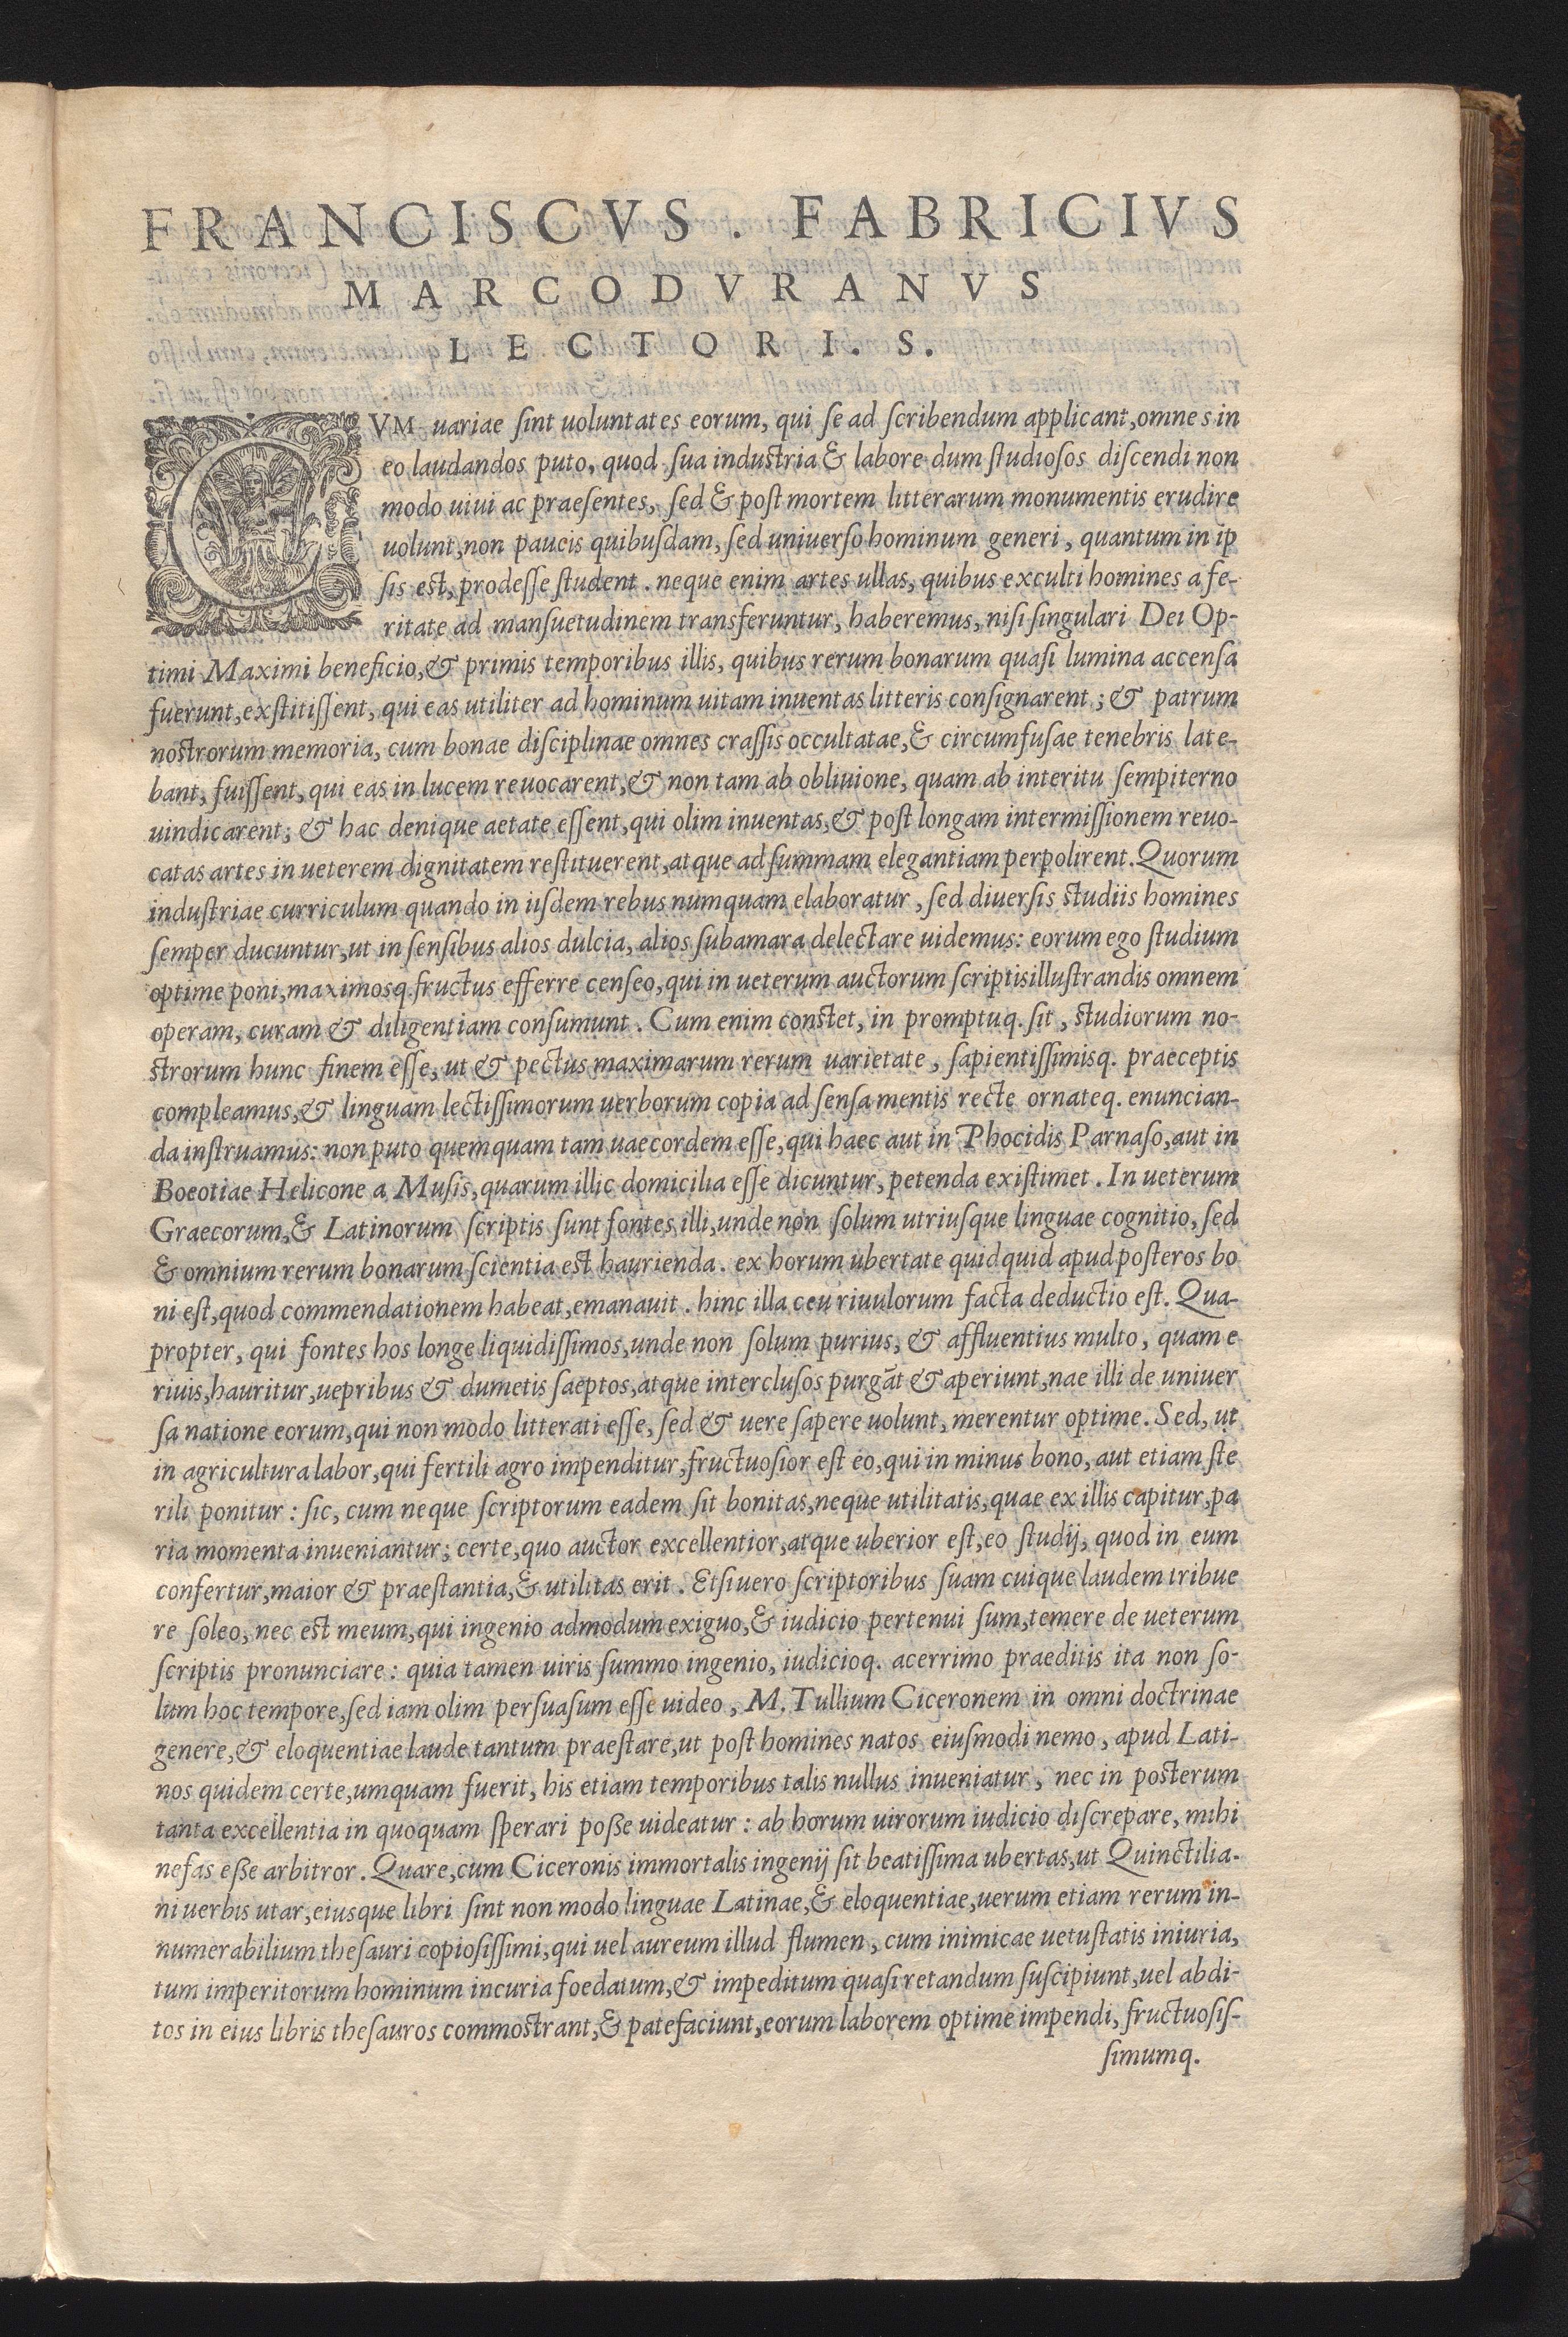 FRANCISCVS. FABRICIVS
MARCODVRANVS
LECTORI. S.
CVM uariae ſint uoluntates eorum, qui ſe ad ſcribendum applicant, omnes in
eo laudandos puto, quod ſua induſtria & labore dum ſtudioſos diſcendi non
modo uiui ac praeſentes, ſed & poſt mortem litterarum monumentis erudire
uolunt, non paucis quibuſdam, ſed uniuerſo hominum generi, quantum in ip
ſis eſt, prodeſſe ſtudent. neque enim artes ullas, quibus exculti homines a fe-
ritate ad manſuetudinem transferuntur, haberemus, niſi ſingulari Dei Op-
timi Maximi beneficio, & primis temporibus illis, quibus rerum bonarum quaſi lumina accenſa
fuerunt, exſtitiſſent, qui eas utiliter ad hominum uitam inuentas litteris conſignarent; & patrum
noſtrorum memoria, cum bonae diſciplinae omnes craſſis occultatae, & circumfuſae tenebris late-
bant, fuiſſent, qui eas in lucem reuocarent, & non tam ab obliuione, quam ab interitu ſempiterno
uindicarent; & hac denique aetate eſſent, qui olim inuentas, & poſt longam intermiſſionem reuo-
catas artes in ueterem dignitatem reſtituerent, atque ad ſummam elegantiam perpolirent. Quorum
induſtriae curriculum quando in iiſdem rebus numquam elaboratur, ſed diuerſis ſtudiis homines
ſemper ducuntur, ut in ſenſibus alios dulcia, alios ſubamara delectare uidemus: eorum ego ſtudium
optime poni, maximosq. fructus efferre cenſeo, qui in ueterum auctorum ſcriptis illuſtrandis omnem
operam, curam & diligentiam conſumunt. Cum enim conſtet, in promptuq. ſit, ſtudiorum no-
ſtrorum hunc finem eſſe, ut & pectus maximarum rerum uarietate, ſapientiſſimisq. praeceptis
compleamus, & linguam lectiſſimorum uerborum copia ad ſenſa mentis recte ornateq. enuncian-
da inſtruamus: non puto quemquam tam uaecordem eſſe, qui haec aut in Phocidis Parnaſo, aut in
Boeotiae Helicone a Muſis, quarum illic domicilia eſſe dicuntur, petenda exiſtimet. In ueterum
Graecorum, & Latinorum ſcriptis ſunt fontes illi, unde non ſolum utriuſque linguae cognitio, ſed
& omnium rerum bonarum ſcientia eſt haurienda. ex horum ubertate quidquid apud poſteros bo
ni eſt, quod commendationem habeat, emanauit. hinc illa ceu riuulorum facta deductio eſt. Qua-
propter, qui fontes hos longe liquidiſſimos, unde non ſolum purius, & affluentius multo, quam e
riuis, hauritur, uepribus & dumetis ſaeptos, atque intercluſos purgāt & aperiunt, nae illi de uniuer
ſa natione eorum, qui non modo litterati eſſe, ſed & uere ſapere uolunt, merentur optime. Sed, ut
in agricultura labor, qui fertili agro impenditur, fructuoſior eſt eo, qui in minus bono, aut etiam ſte
rili ponitur: ſic, cum neque ſcriptorum eadem ſit bonitas, neque utilitatis, quae ex illis capitur, pa
ria momenta inueniantur; certe, quo auctor excellentior, atque uberior eſt, eo ſtudij, quod in eum
confertur, maior & praeſtantia, & utilitas erit. Etſi uero ſcriptoribus ſuam cuique laudem tribue
re ſoleo, nec eſt meum, qui ingenio admodum exiguo, & iudicio pertenui ſum, temere de ueterum
ſcriptis pronunciare: quia tamen uiris ſummo ingenio, iudicioq. acerrimo praeditis ita non ſo-
lum hoc tempore, ſed iam olim perſuaſum eſſe uideo, M. Tullium Ciceronem in omni doctrinae
genere, & eloquentiae laude tantum praeſtare, ut poſt homines natos eiuſmodi nemo, apud Lati-
nos quidem certe, umquam fuerit, his etiam temporibus talis nullus inueniatur, nec in poſterum
tanta excellentia in quoquam ſperari poſſe uideatur: ab horum uirorum iudicio diſcrepare, mihi
nefas eſſe arbitror. Quare, cum Ciceronis immortalis ingenij ſit beatiſſima ubertas, ut Quinctilia-
ni uerbis utar, eiusque libri ſint non modo linguae Latinae, & eloquentiae, uerum etiam rerum in-
numerabilium theſauri copioſiſſimi, qui uel aureum illud flumen, cum inimicae uetuſtatis iniuria,
tum imperitorum hominum incuria foedatum, & impeditum quaſi retandum ſuſcipiunt, uel abdi-
tos in eius libris theſauros commoſtrant, & patefaciunt, eorum laborem optime impendi, fructuoſiſ-
ſimumq.